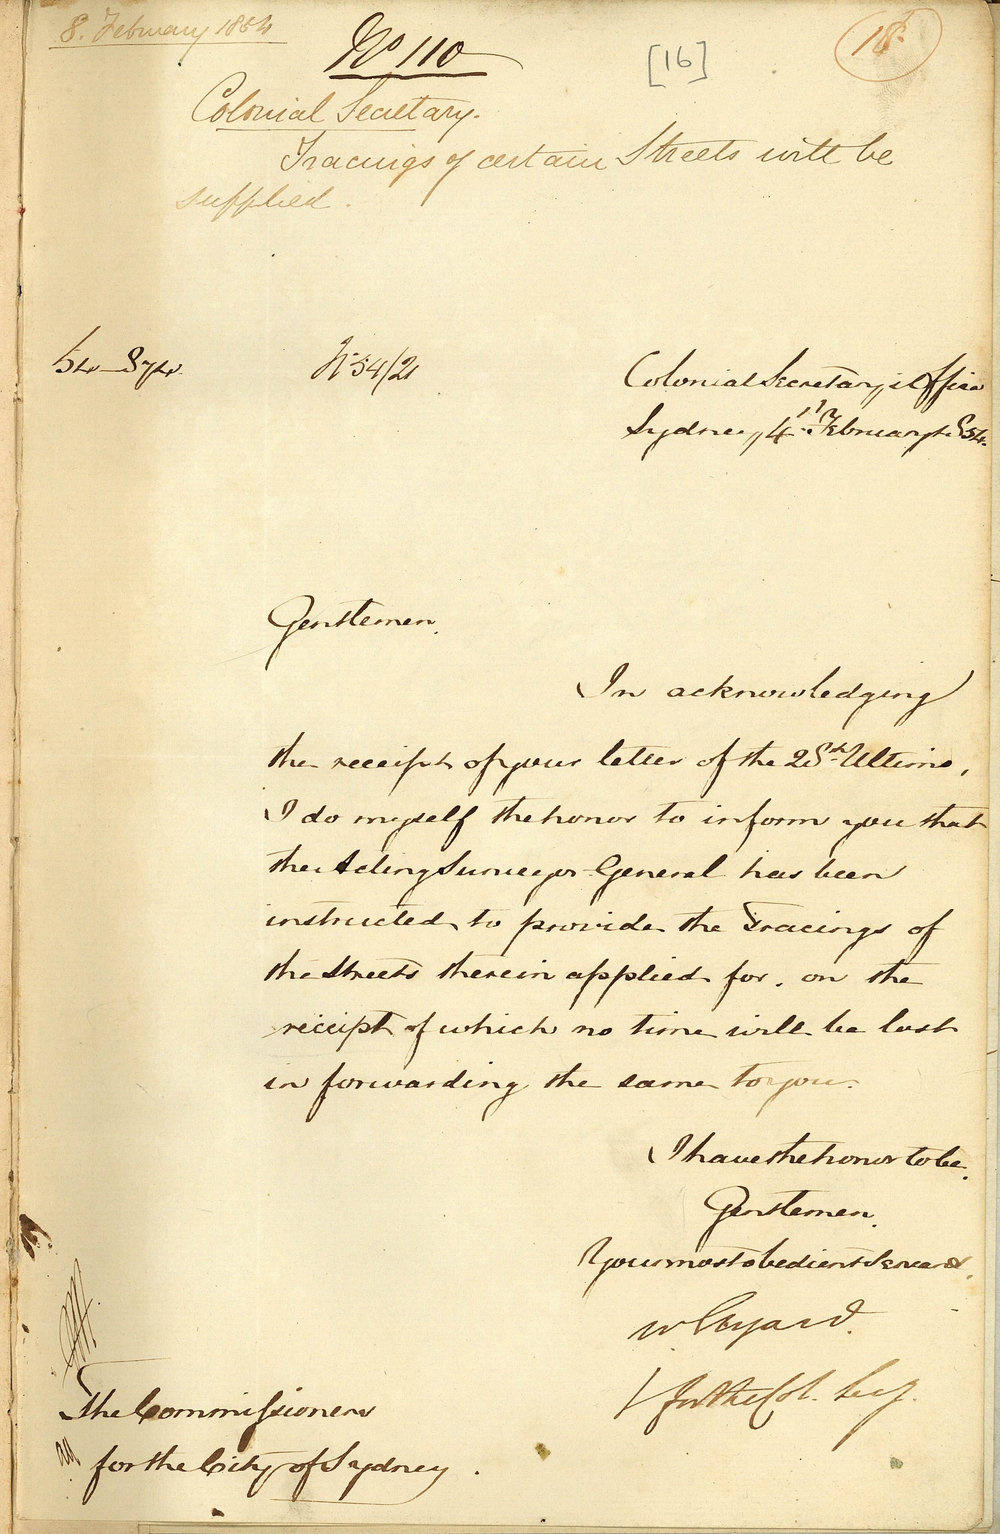 8. February 1854
No 110
[16]
18
Colonial Secretary.
Tracings of certain Streets will be
supplied.
54–874
No 54/21
Colonial Secretary's Office
Sydney, 4th February 1854.
Gentlemen,
In acknowledging
the receipt of your letter of the 28th Ultimo,
I do myself the honor to inform you that
the Acting Surveyor General has been
instructed to provide the Tracings of
the Streets therein applied for, on the
receipt of which no time will be lost
in forwarding the same to you.
I have the honor to be,
Gentlemen,
Your most obedient Servant,
W Elyard
for the Col. Secy.
The Commissioners
for the City of Sydney.